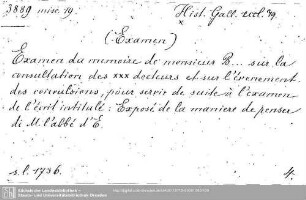 3889 misc 19.
Hist. Gall. vol. 39.
(Examen)
Examen du memoire de monsieur B... sur la
consultation des xxx docteurs et sur l'évenement
des convulsions, pour servir de suite à l'examen
de l'écrit intitulé: Exposé de la maniere de penser
de M. l'abbé d'E.
s. l. 1736.
4.